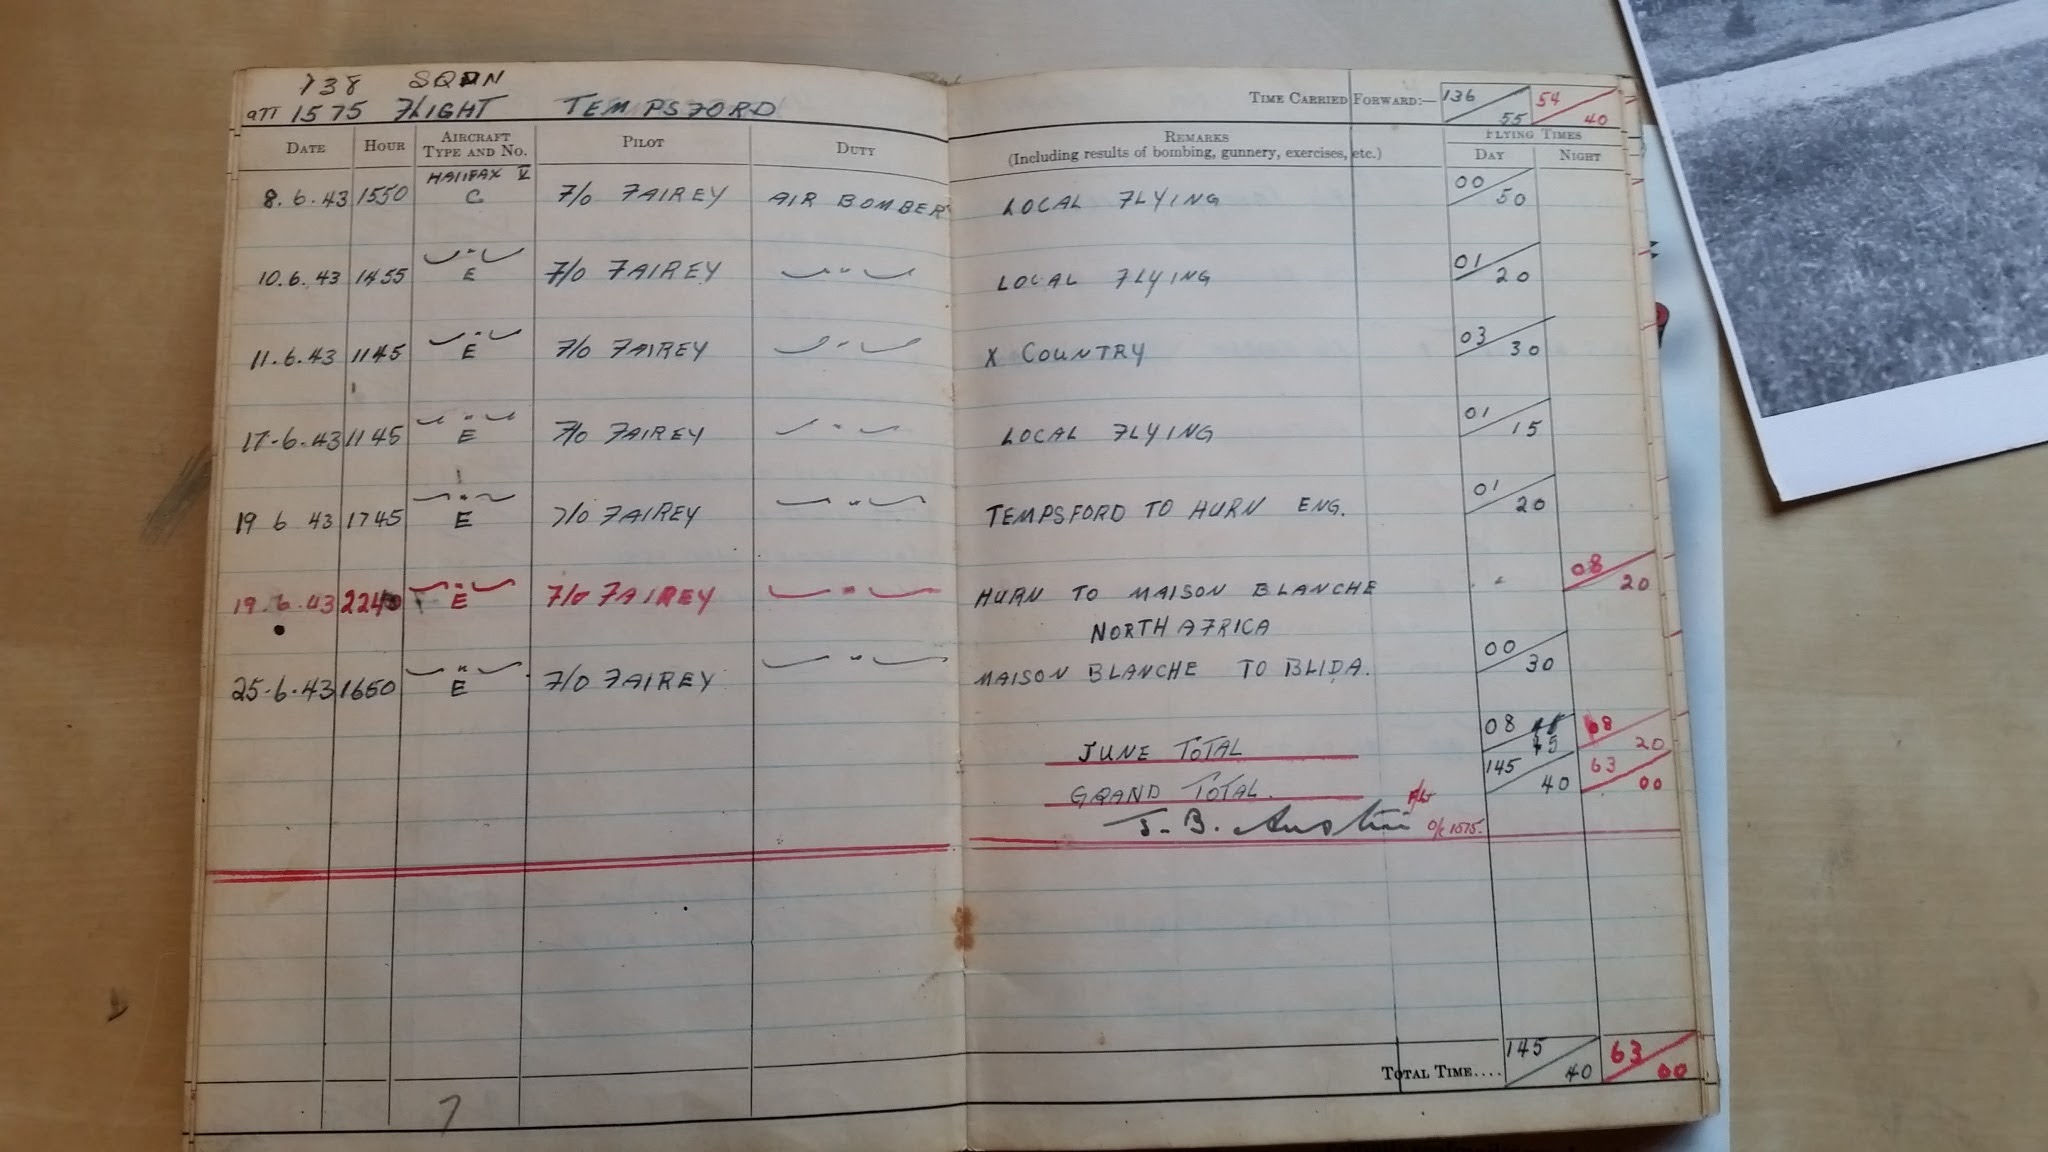 138 SQDN
ATT 1575 FLIGHT TEMPSFORD
TIME CARRIED FORWARD:— 136 55 54 40
DATE HOUR AIRCRAFT TYPE AND NO. PILOT DUTY REMARKS (Including results of bombing, gunnery, exercises, etc.) FLYING TIMES DAY NIGHT
8.6.43 1550 HALIFAX V C F/O FAIREY AIR BOMBER LOCAL FLYING 00 50
10.6.43 1455 -"- E F/O FAIREY -"- LOCAL FLYING 01 20
11.6.43 1145 -"- E F/O FAIREY -"- X COUNTRY 03 30
17-6.43 1145 -"- E F/O FAIREY -"- LOCAL FLYING 01 15
19 6 43 1745 -"- E F/O FAIREY -"- TEMPSFORD TO HURN ENG. 01 20
19.6.43 2240 -"- E F/O FAIREY -"- HURN TO MAISON BLANCHE 08 20
NORTH AFRICA
25-6-43 1650 -"- E F/O FAIREY -"- MAISON BLANCHE TO BLIDA. 00 30
JUNE TOTAL 08 45 08 20
GRAND TOTAL. 145 40 63 00
J. B. Austin F/Lt O/C 1575.
TOTAL TIME.... 145 40 63 00
7